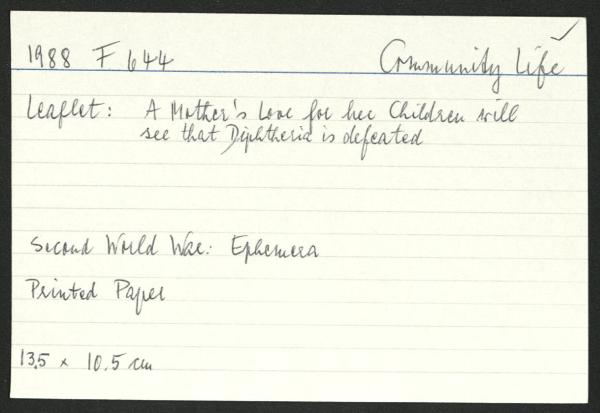 1988 F 644 Community Life
Leaflet: A Mother's Love for her Children will
see that Diphtheria is defeated
Second World War: Ephemera
Printed Paper
13.5 x 10.5 cm